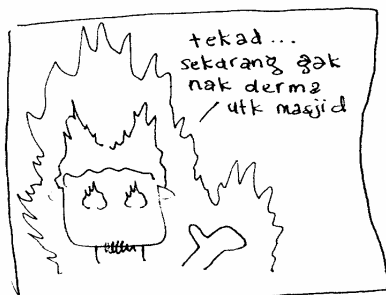 tekad...
sekarang gak
nak derma
utk masjid